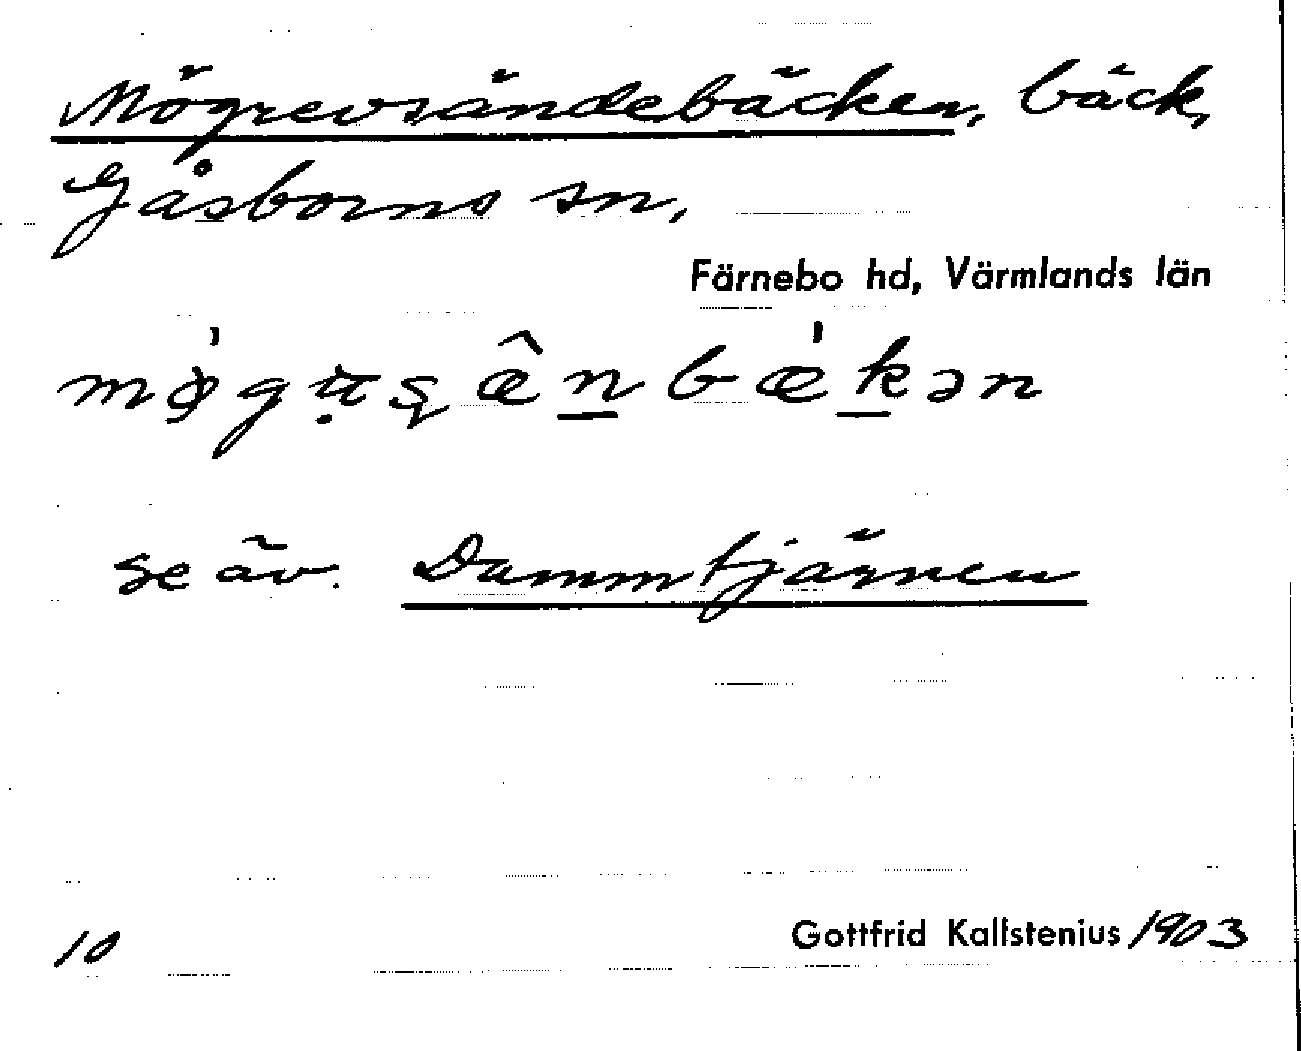 Mögrevsändebäcken, bäck,
Gåsborns sn,
Färnebo hd, Värmlands län
se äv. Dammtjärnen
10
Gottfrid Kallstenius 1903